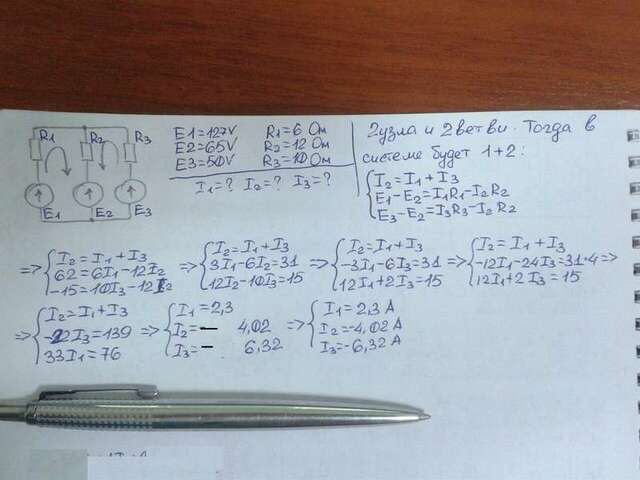 R1 R2 R3
E1 E2 E3
E1=127V R1=6 Ом
E2=65V R2=12 Ом
E3=50V R3=10 Ом
I1=? I2=? I3=?
2 узла и 2 ветви. Тогда в
системе будет 1+2:
{I2=I1+I3
E1-E2=I1R1-I2R2
E3-E2=I3R3-I2R2
=>{I2=I1+I3
62=6I1-12I2
-15=10I3-12I2
=>{I2=I1+I3
3I1-6I2=31
12I2-10I3=15
=>{I2=I1+I3
-3I1-6I3=31
12I1+2I3=15
=>{I2=I1+I3
-12I1-24I3=31·4 =>
12I1+2I3=15
=>{I2=I1+I3
-22I3=139
33I1=76
=>{I1=2,3
I2=- 4,02
I3=- 6,32
=>{I1=2,3 A
I2=-4,02 A
I3=-6,32 A